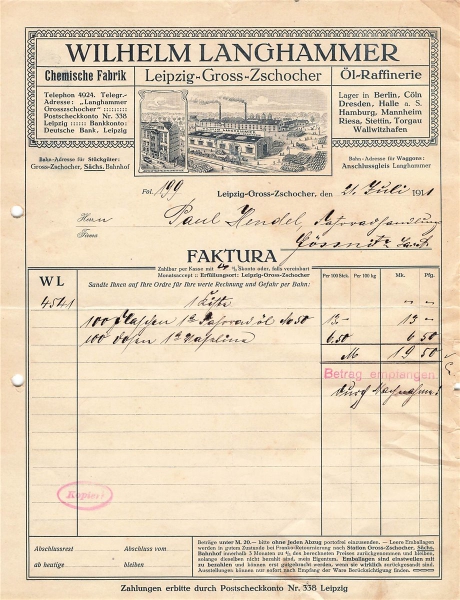 WILHELM LANGHAMMER
Chemische Fabrik
Leipzig-Gross-Zschocher
Öl-Raffinerie
Telephon 4024. Telegr.-
Adresse: „Langhammer
Grosszschocher"
Postscheckkonto Nr. 338
Leipzig :: Bankkonto:
Deutsche Bank, Leipzig
Lager in Berlin, Cöln
Dresden, Halle a. S.
Hamburg, Mannheim
Riesa, Stettin, Torgau
Wallwitzhafen
Bahn-Adresse für Stückgüter:
Gross-Zschocher, Sächs. Bahnhof
Bahn-Adresse für Waggons:
Anschlussgleis Langhammer
Fol. 199
Leipzig-Gross-Zschocher, den 21. Juli 1911
Herrn Paul Hendel, Fahrradhandlung
Firma Gössnitz
FAKTURA
Zahlbar per Kasse mit % Skonto oder, falls vereinbart
Monatsaccept :: Erfüllungsort: Leipzig-Gross-Zschocher
WL
Sandte Ihnen auf Ihre Ordre für Ihre werte Rechnung und Gefahr per Bahn:
Per 100 Stck. Per 100 kg Mk. Pfg.
4541 1 Kiste " "
100 Flaschen 1a Fahrradöl No 50 13.- 13 -
100 Dosen 1a Vaseline 6.50 6 50
M 19 50
Betrag empfangen
durch Nachnahme!
Kopiert
Abschlussrest
Abschluss vom
ab heutige
bleiben
Beträge unter M. 20.— bitte ohne jeden Abzug portofrei einzusenden. — Leere Emballagen
werden in gutem Zustande bei Franko-Retournierung nach Station Gross-Zschocher, Sächs.
Bahnhof innerhalb 3 Monaten zu ⅘ des berechneten Preises zurückgenommen und bleiben,
solange dieselben nicht bezahlt sind, mein Eigentum. Emballagen sind einstweilen mit
zu bezahlen und können erst gutgebracht werden, wenn sie wirklich zurückgesandt sind.
Ausstellungen können nur sofort nach Empfang der Ware Berücksichtigung finden.
Zahlungen erbitte durch Postscheckkonto Nr. 338 Leipzig